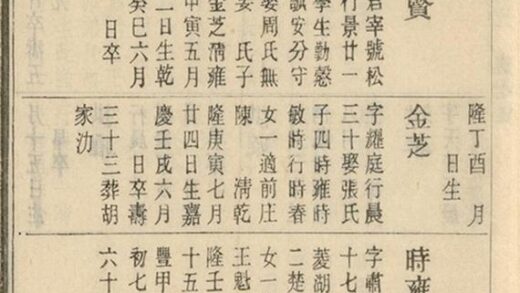 賢
君宰號松
行景廿一
學生勤慤
飄安分守
娶周氏無
妾 氏子
金芝淸雍
甲寅五月
二日生乾
癸巳六月
日卒
隆丁酉 月
日生
金芝
字耀庭行晨
三十娶張氏
子四時雍時
敏時行時春
女一適前庄
陳 淸乾
隆庚寅七月
廿四日生嘉
慶壬戌六月
日卒壽
三十三葬胡
家沕
時雍
字
十七
菱湖
二楚
女一
王魁
隆壬
十五
豐甲
初七
六十